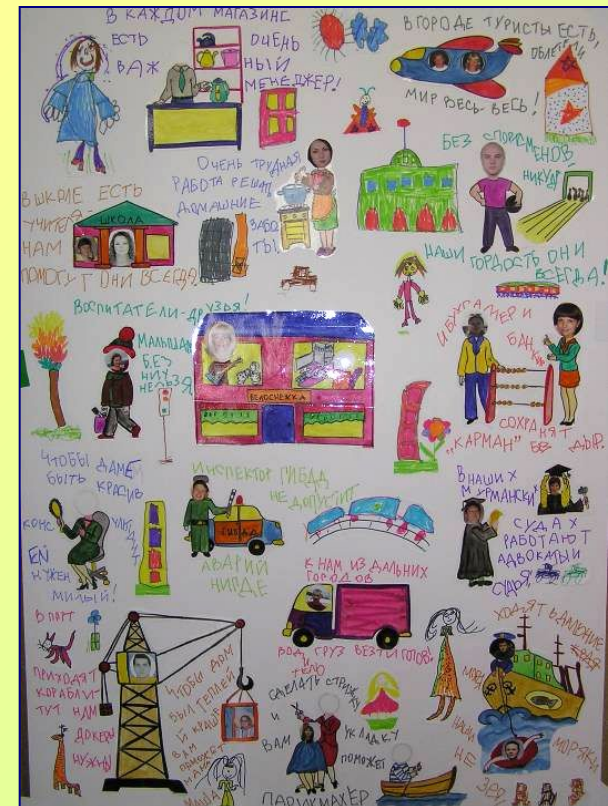 В КАЖДОМ МАГАЗИНЕ
ЕСТЬ ОЧЕНЬ
ВАЖ НЫЙ
МЕНЕДЖЕР!
В ГОРОДЕ ТУРИСТЫ ЕСТЬ,
ОБЛЕТЕЛИ
МИР ВЕСЬ-ВЕСЬ!
В ШКОЛЕ ЕСТЬ
УЧИТЕЛЯ-
НАМ
ПОМОГУТ ОНИ ВСЕГДА.
ШКОЛА
ОЧЕНЬ ТРУДНАЯ
РАБОТА РЕШАТЬ
ДОМАШНИЕ
ЗАБО
ТЫ.
БЕЗ СПОРТСМЕНОВ
НИКУДА
НАШИ ГОРДОСТЬ ОНИ
ВСЕГДА!
ВОСПИТАТЕЛИ-ДРУЗЬЯ!
МАЛЫШАМ
БЕЗ
НИХ
НЕЛЬЗЯ
БЕЛОСНЕЖКА
И БУХГАЛТЕР И
БАНКИР
СОХРАНЯТ
"КАРМАН" БЕЗ ДЫР.
ЧТОБЫ ДАМЕ
БЫТЬ КРАСИВ
ЕЙ
НУЖЕН
МИЛЫЙ!
ИНСПЕКТОР ГИБДД
НЕ ДОПУСТИТ
АВАРИЙ
НИГДЕ
ГИБДД
В НАШИХ
МУРМАНСКИХ
СУДАХ
РАБОТАЮТ
АДВОКАТЫ И
СУДЬЯ
К НАМ ИЗ ДАЛЬНИХ
ГОРОДОВ
ГРУЗ ВЕЗТИ ГОТОВ
В ПОРТ
ПРИХОДЯТ
КОРАБЛИ
ТУТ НАМ
ДОКЕРЫ
НУЖНЫ
ЧТОБЫ ДОМ
БЫЛ ТЕПЛЕЙ
И КРАШЕ
ВАМ
ПОМОЖЕТ
СДЕЛАТЬ СТРИЖКУ
И УКЛАДКУ
ВАМ ПОМОЖЕТ
ПАРИКМАХЕР
ХОДЯТ В ДАЛЬНИЕ
МОРЯ
НАШИ
МОРЯКИ
НЕ
ЗРЯ